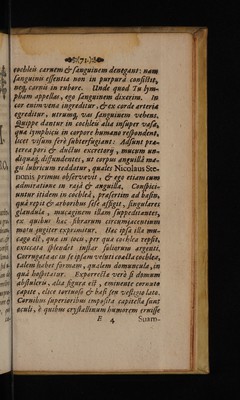 (71.)
cochleis carnem & sanguinem denegant: nam
sanguinis essentia non in purpurâ consistit,
neq; carnis in rubore. Unde quod Tu lym-
pham appellas, ego sanguinem dixerim. In
cor enim vena ingreditur, & ex corde arteria
egreditur, utrumq; vas sanguinem vehens.
Quippe dantur in cochleis alia insuper vasa,
quæ lymphicis in corpore humano respondent,
licet visum ferè subterfugiant: Adsunt præ-
terea pori & ductus excretorij, mucum un-
diquaq; diffundentes, ut corpus anguillâ ma-
gis lubricum reddatur, quales Nicolaus Ste-
nonis primus observavit, & ego etiam cum
admiratione in rajâ & anguilla. Conspici-
untur itidem in cochleâ, præsertim ad basin,
quâ repit & arboribus sese affigit, singulares
glandulæ, mucaginem illam suppeditantes,
ex quibus hac fibrarum circumjacentium
motu jugiter exprimitur. Hæc ipsa illa mu-
cago est, quæ in locis, per quæ cochlea repsit,
exsiccata splendet instar liturarum argenti.
Corrugata ac in se ipsam veluti coacta cochlea,
talem habet formam, qualem domuncula, in
quâ hospitatur. Exporrecta verò si domum
abstuleris, alia figura est, eminente cornuto
capite, elice tortuoso & basi seu vestigio lato.
Cornibus superioribus imposita capitella sunt
oculi, è quibus crystallinum humorem ernisse
E 4